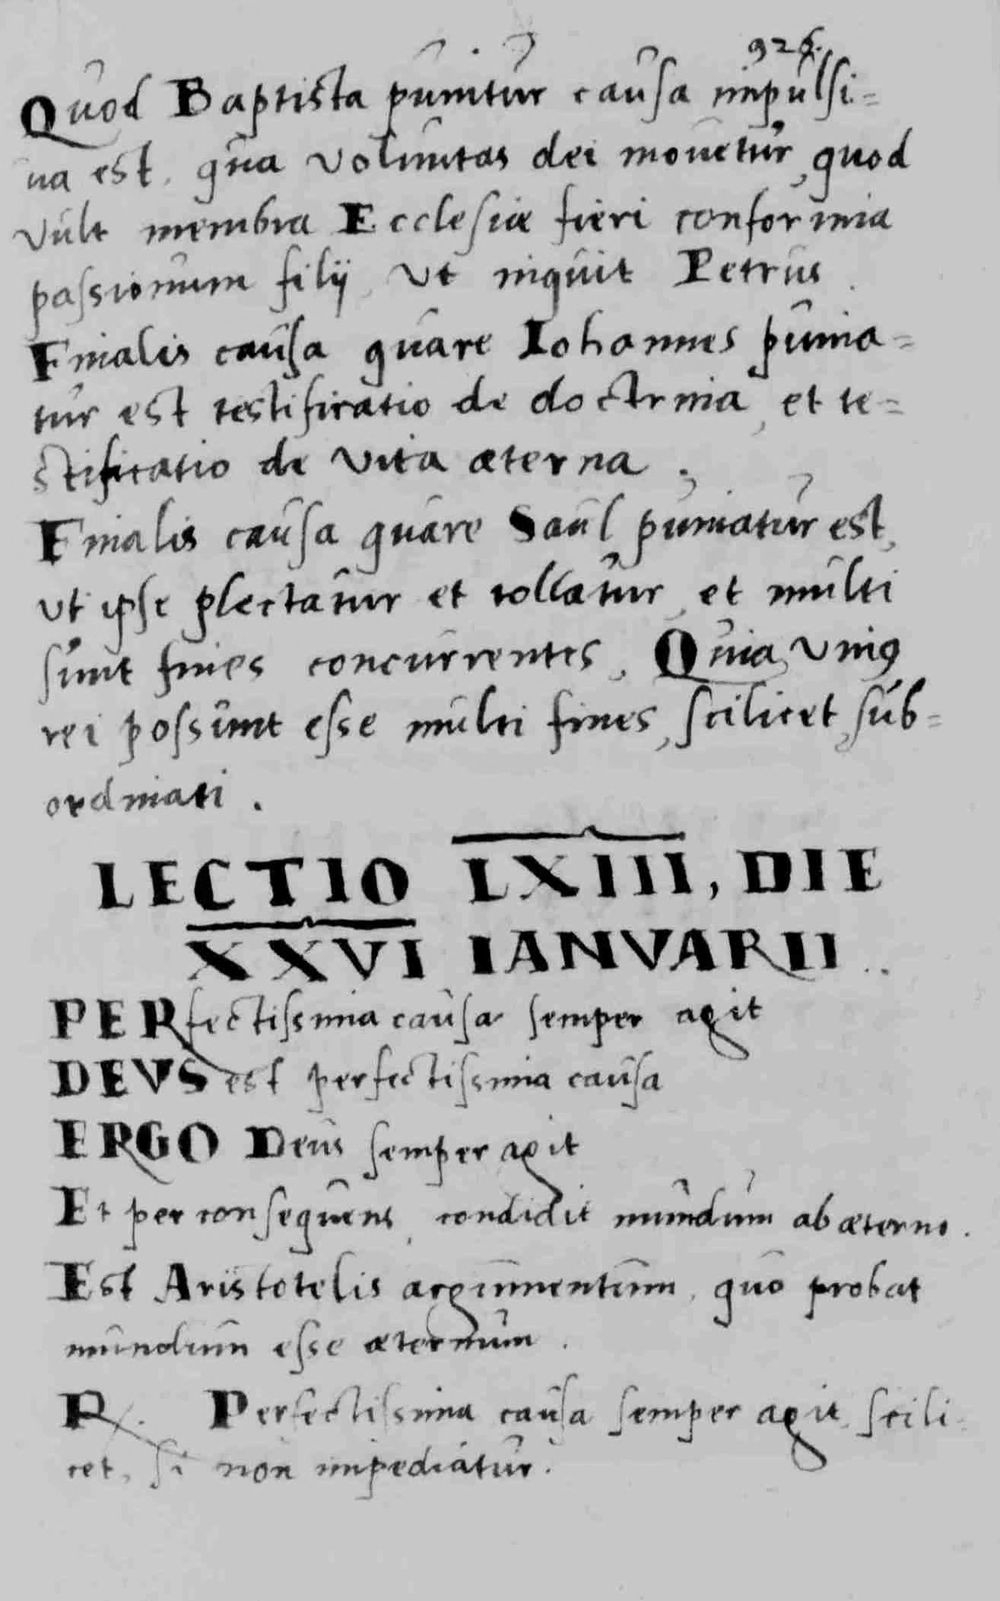 926.
Quod Baptista punitur causa impulsi=
ua est, qua voluntas dei mouetur, quod
vult membra Ecclesiæ fieri conformia
passionum filij, vt inquit Petrus.
Finalis causa quare Iohannes punia=
tur est testificatio de doctrina, et te=
stificatio de vita æterna.
Finalis causa quare Saul puniatur est,
vt ipse plectatur et tollatur, et multi
sunt fines concurrentes, Quia vnius
rei possunt esse multi fines, scilicet, sub=
ordinati.
LECTIO LXIII, DIE
XXVI IANVARII.
PERfectissima causa semper agit
DEVS est perfectissima causa
ERGO Deus semper agit
Et per consequens, condidit mundum ab æterno.
Est Aristotelis argumentum, quo probat
mundum esse æternum.
R. Perfectissima causa semper agit, scili
cet, si non impediatur.